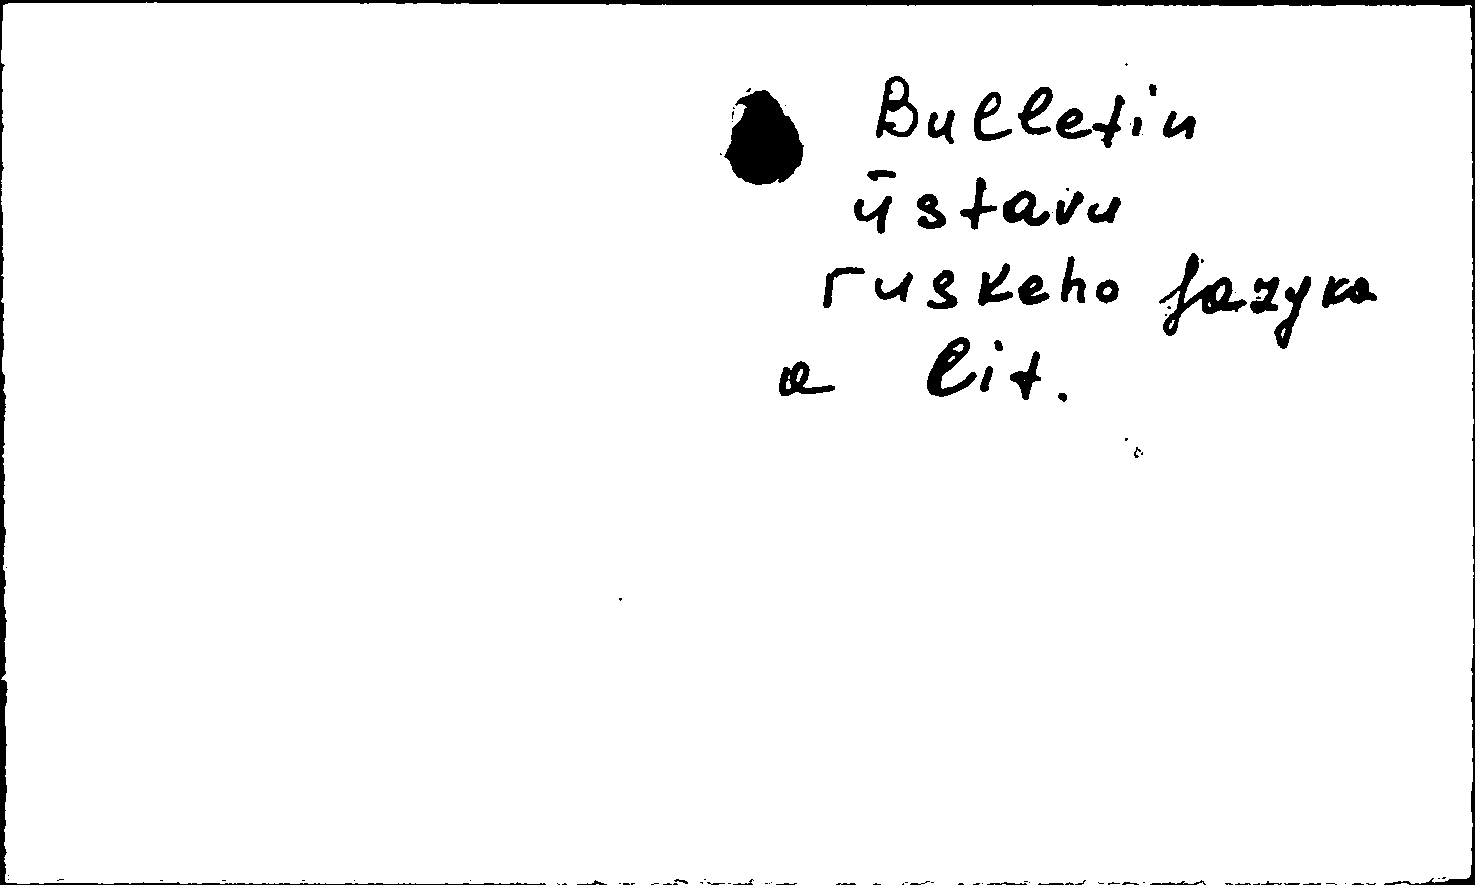 Bulletin
ústavu
ruskeho jazyka
a lit.